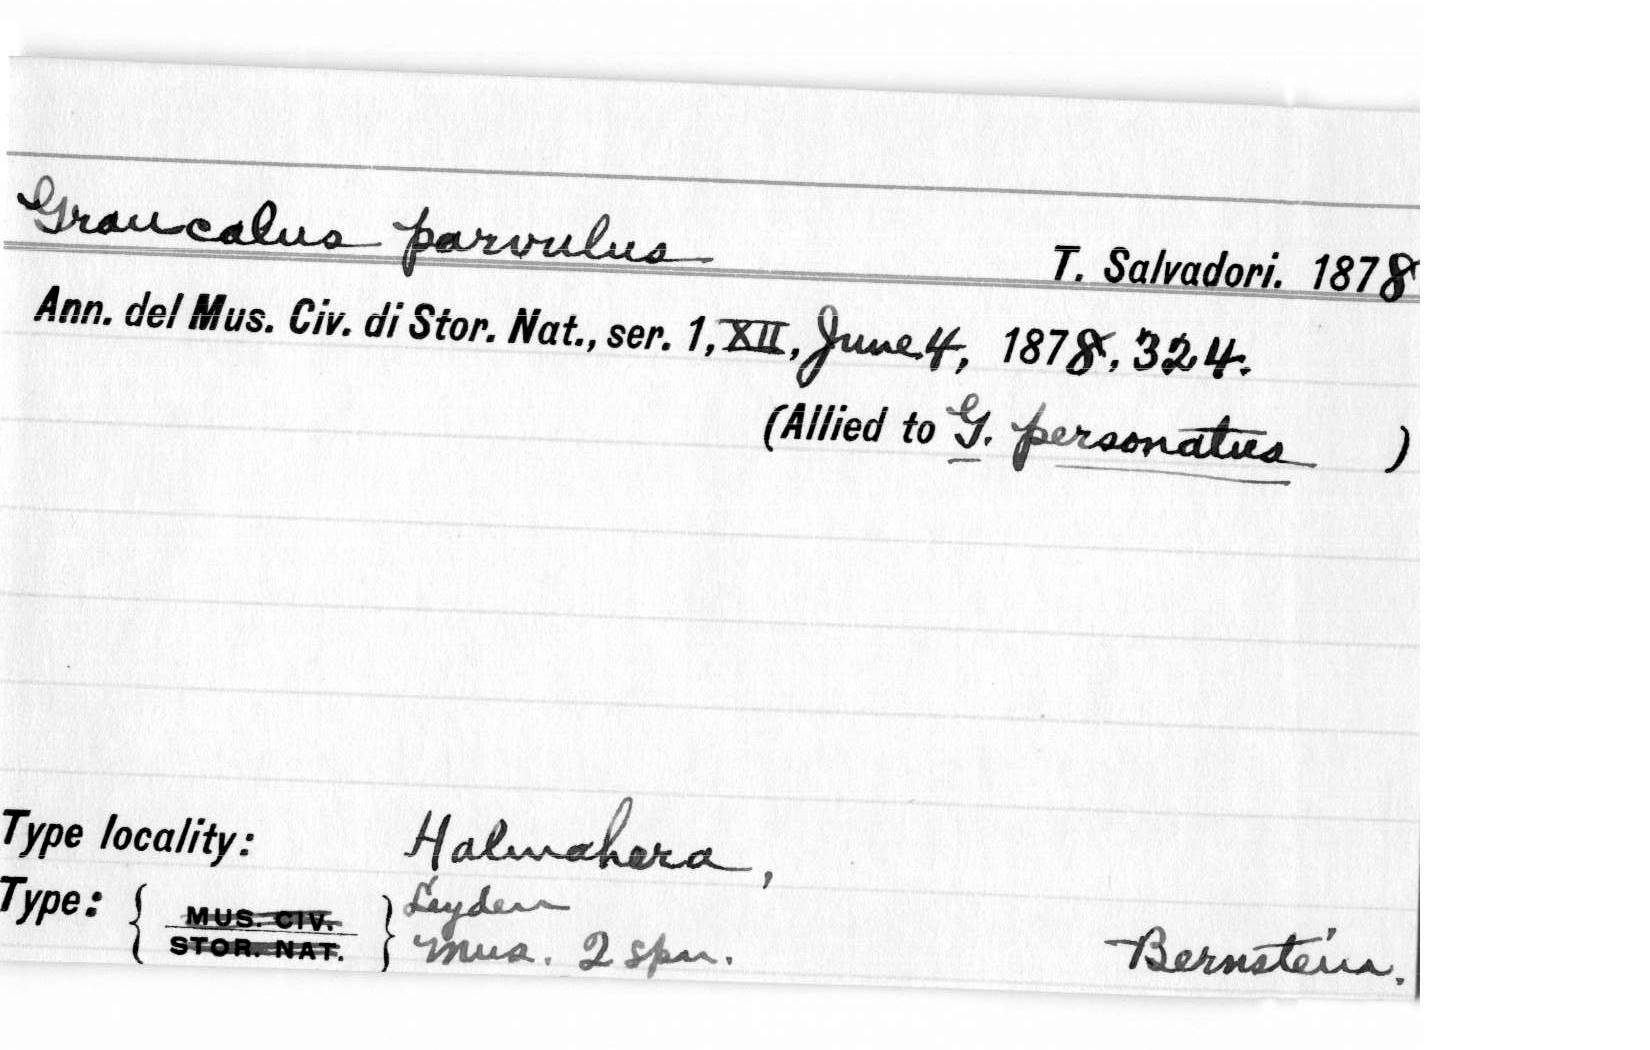 Graucalus parvulus T. Salvadori. 1878
Ann. del Mus. Civ. di Stor. Nat., ser. 1, XII, June 4, 1878, 324.
(Allied to G. personatus )
Type locality: Halmahera,
Type: { MUS. CIV. } Leyden
STOR. NAT. Mus. 2 spm. Bernstein.